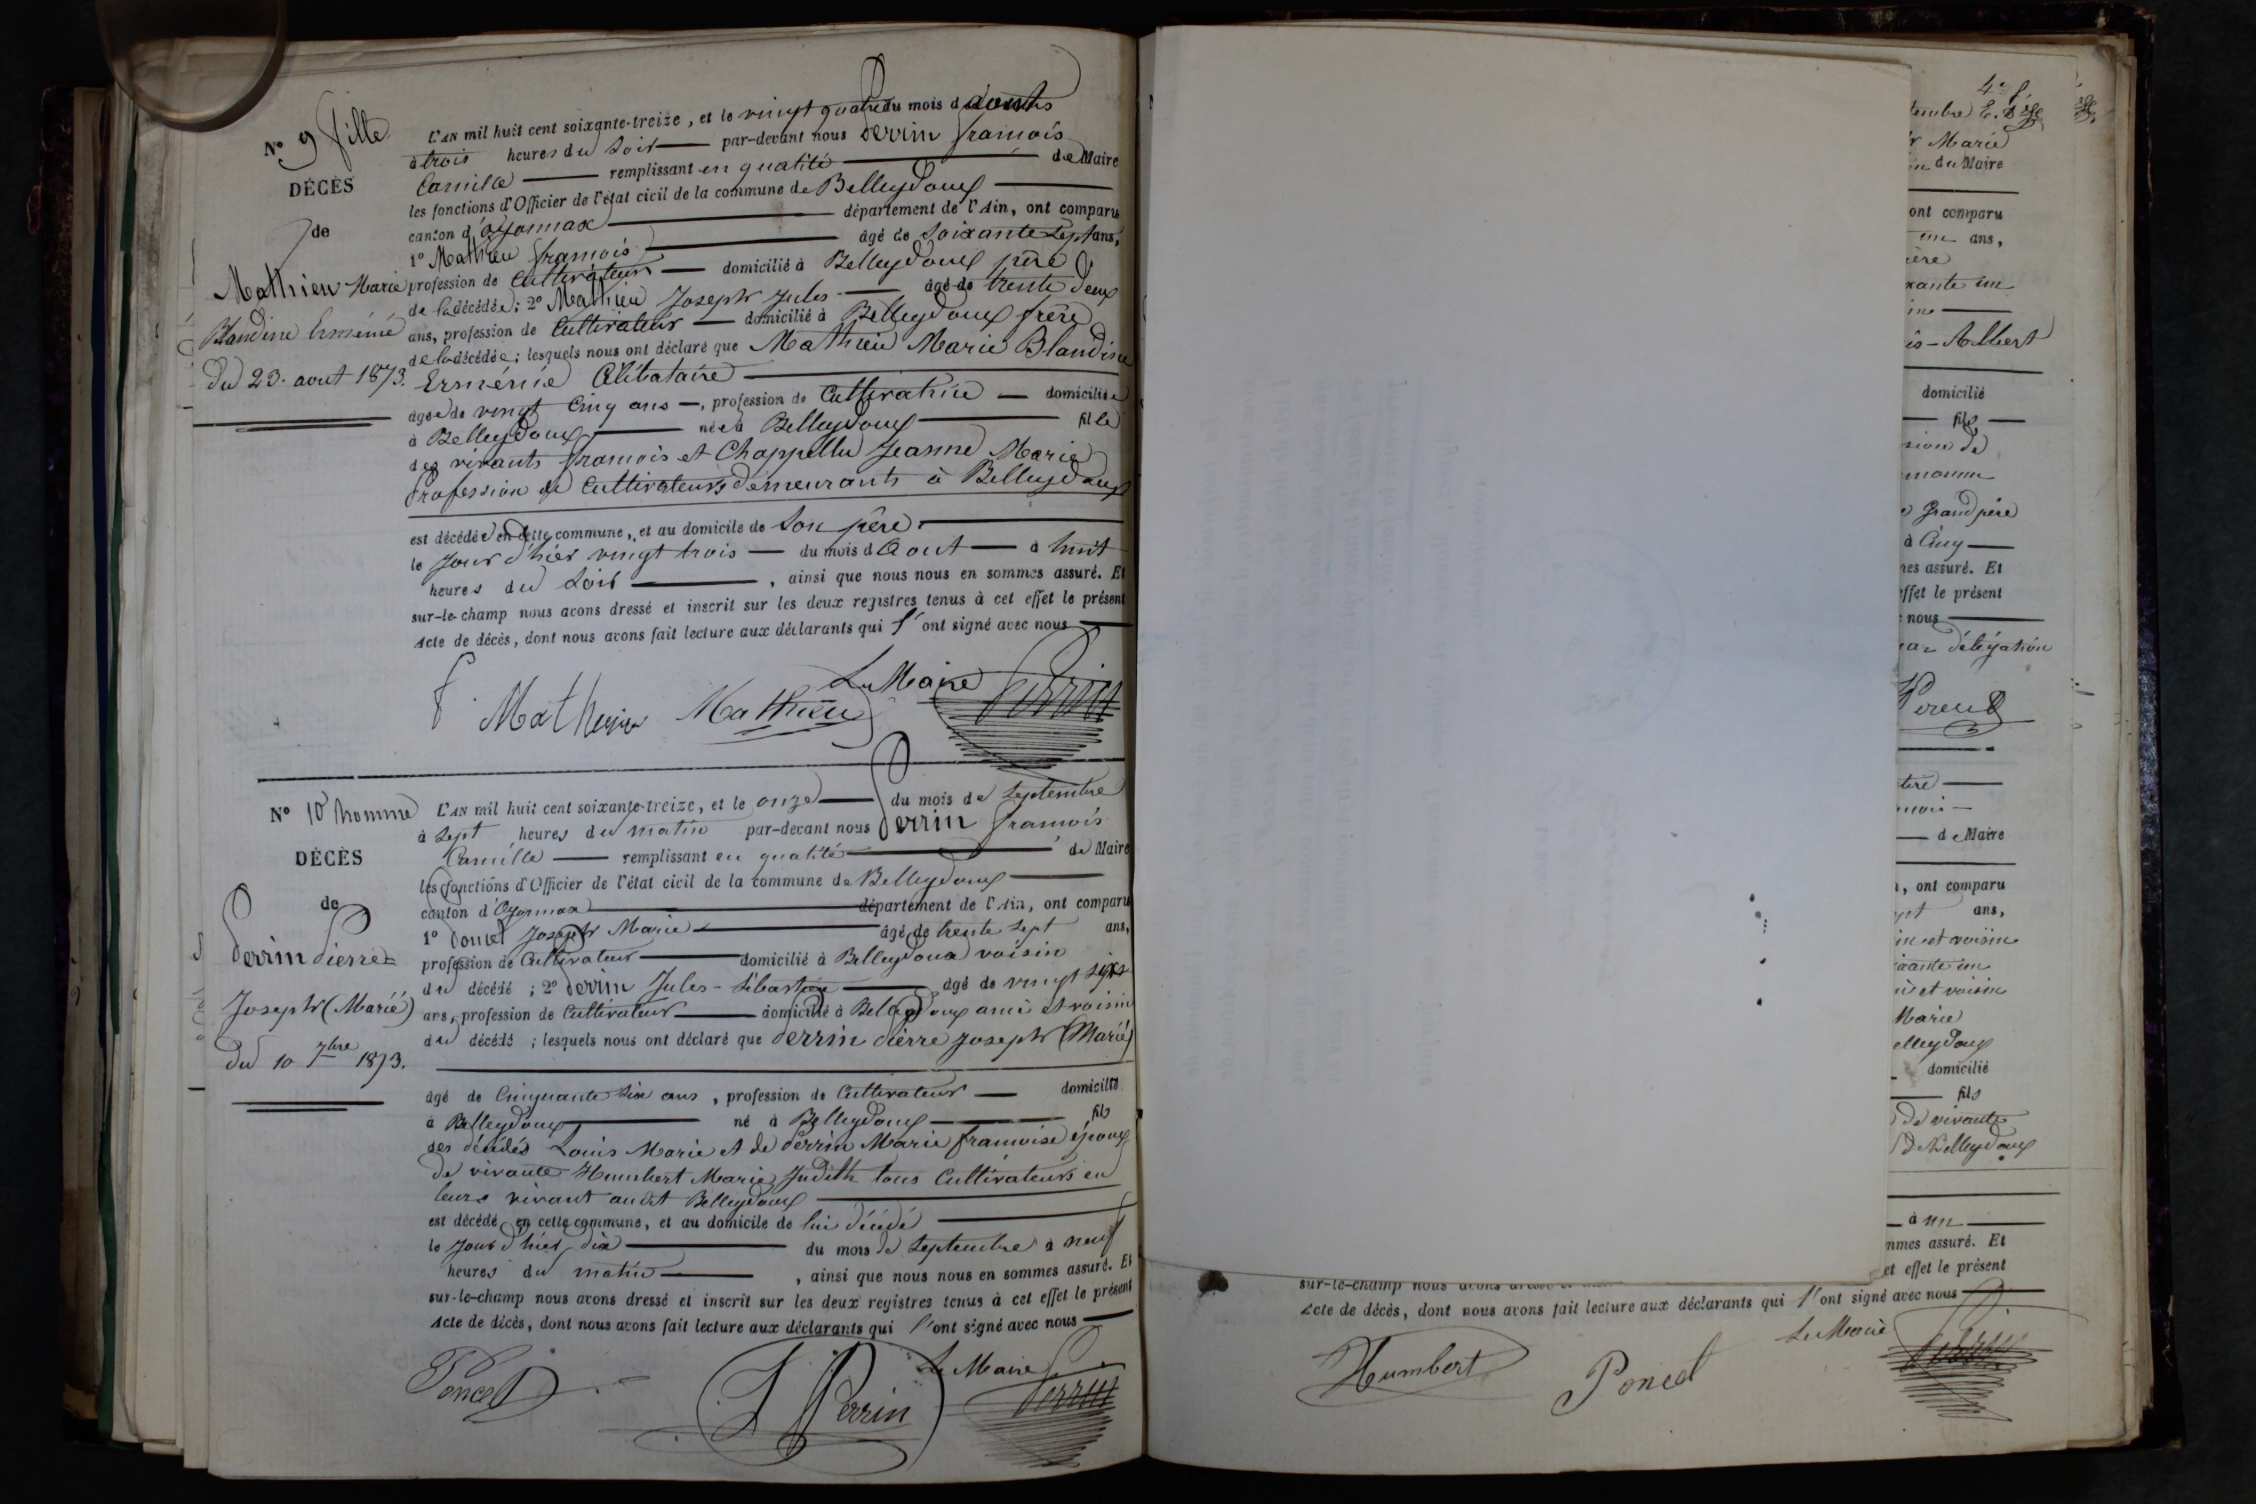 N° 9 fille
DÉCÈS
de
Mathieu Marie
Blandine Erménie
du 23. aout 1873.
L'AN mil huit cent soixante-treize, et le vingt quatre du mois d'aout
à trois heures du soir par-devant nous Perrin François
Camille remplissant en qualité de Maire
les fonctions d'Officier de l'état civil de la commune de Belleydoux
canton d'Oyonnax département de l'Ain, ont comparu
1° Mathieu François âgé de soixante sept ans,
profession de Cultivateur domicilié à Belleydoux père
de la décédée ; 2° Mathieu Joseph Jules âgé de trente deux
ans, profession de Cultivateur domicilié à Belleydoux frère
de la décédée ; lesquels nous ont déclaré que Mathieu Marie Blandine
Erménie Célibataire
âgée de vingt cinq ans, profession de Cultivatrice domiciliée
à Belleydoux née à Belleydoux fille
des vivants François et Chappellu Jeanne Marie
Profession de Cultivateurs demeurants à Belleydoux
est décédée en cette commune, et au domicile de son père
le jour d'hier vingt trois du mois d'Aout à huit
heures du soir, ainsi que nous nous en sommes assuré. Et
sur-le-champ nous avons dressé et inscrit sur les deux registres tenus à cet effet le présent
Acte de décès, dont nous avons fait lecture aux déclarants qui l'ont signé avec nous
Le Maire
f. Mathieu Mathieu Perrin
N° 10 homme
DÉCÈS
de
Perrin Pierre
Joseph (Marié)
du 10 7bre 1873.
L'AN mil huit cent soixante-treize, et le onze du mois de Septembre
à sept heures du matin par-devant nous Perrin François
Camille remplissant en qualité de Maire
les fonctions d'Officier de l'état civil de la commune de Belleydoux
canton d'Oyonnax département de l'Ain, ont comparu
1° Poncet Joseph Marie âgé de trente sept ans,
profession de Cultivateur domicilié à Belleydoux voisin
du décédé ; 2° Perrin Jules-Sébastien âgé de vingt six
ans, profession de Cultivateur domicilié à Belleydoux ami et voisin
du décédé ; lesquels nous ont déclaré que Perrin Pierre Joseph (Marié)
âgé de Cinquante six ans, profession de Cultivateur domicilié
à Belleydoux né à Belleydoux fils
des décédés Louis Marie et de Perrin Marie françoise époux
de vivante Humbert Marie Judith tous Cultivateurs en
leurs vivant audit Belleydoux
est décédé en cette commune, et au domicile de lui décédé
le jour d'hier dix du mois de Septembre à neuf
heures du matin, ainsi que nous nous en sommes assuré. Et
sur-le-champ nous avons dressé et inscrit sur les deux registres tenus à cet effet le présent
Acte de décès, dont nous avons fait lecture aux déclarants qui l'ont signé avec nous
Le Maire
Poncet J Perrin Perrin
4e f.
tembre
Marie
du Maire
ont comparu
un ans,
ère
xante un
is-Albert
domicilié
fils
sion de
Grand père
à Cinq
mes assuré. Et
effet le présent
nous
par délégation
de Maire
, ont comparu
ept ans,
et voisin
xante un
et voisin
Marie
elleydoux
domicilié
fils
de vivante
Belleydoux
à un
mmes assuré. Et
et effet le présent
sur-le-champ nous avons dressé
Acte de décès, dont nous avons fait lecture aux déclarants qui l'ont signé avec nous
Le Maire
Humbert Poncet Perrin